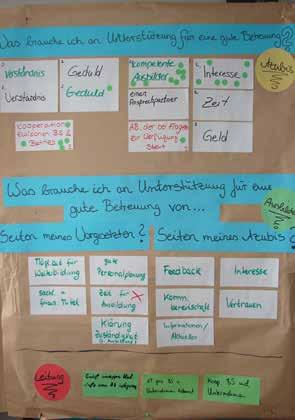 Was brauche ich an Unterstützung für eine gute Betreuung?
Azubis
Verständnis
Geduld
Kompetente Ausbilder
Interesse
Verständnis
Geduld
einen Ansprechpartner
Zeit
Kooperation
zwischen BS &
Betrieb
AB, der bei Fragen
zur Verfügung
steht
Geld
Was brauche ich an Unterstützung für eine
gute Betreuung von...
Ausbilder
Seiten meines Vorgesetzten?
Seiten meines Azubis?
Möglichk. für
Weiterbildung
gute
Personalplanung
Feedback
Interesse
sachl. +
finanz. Mittel
Zeit für
Ausbildung
Komm.
bereitschaft
Vertrauen
Klärung
Zuständigkeit
Informationen/
Aktuelles
Leitung
Koop. BS und
Unternehmen